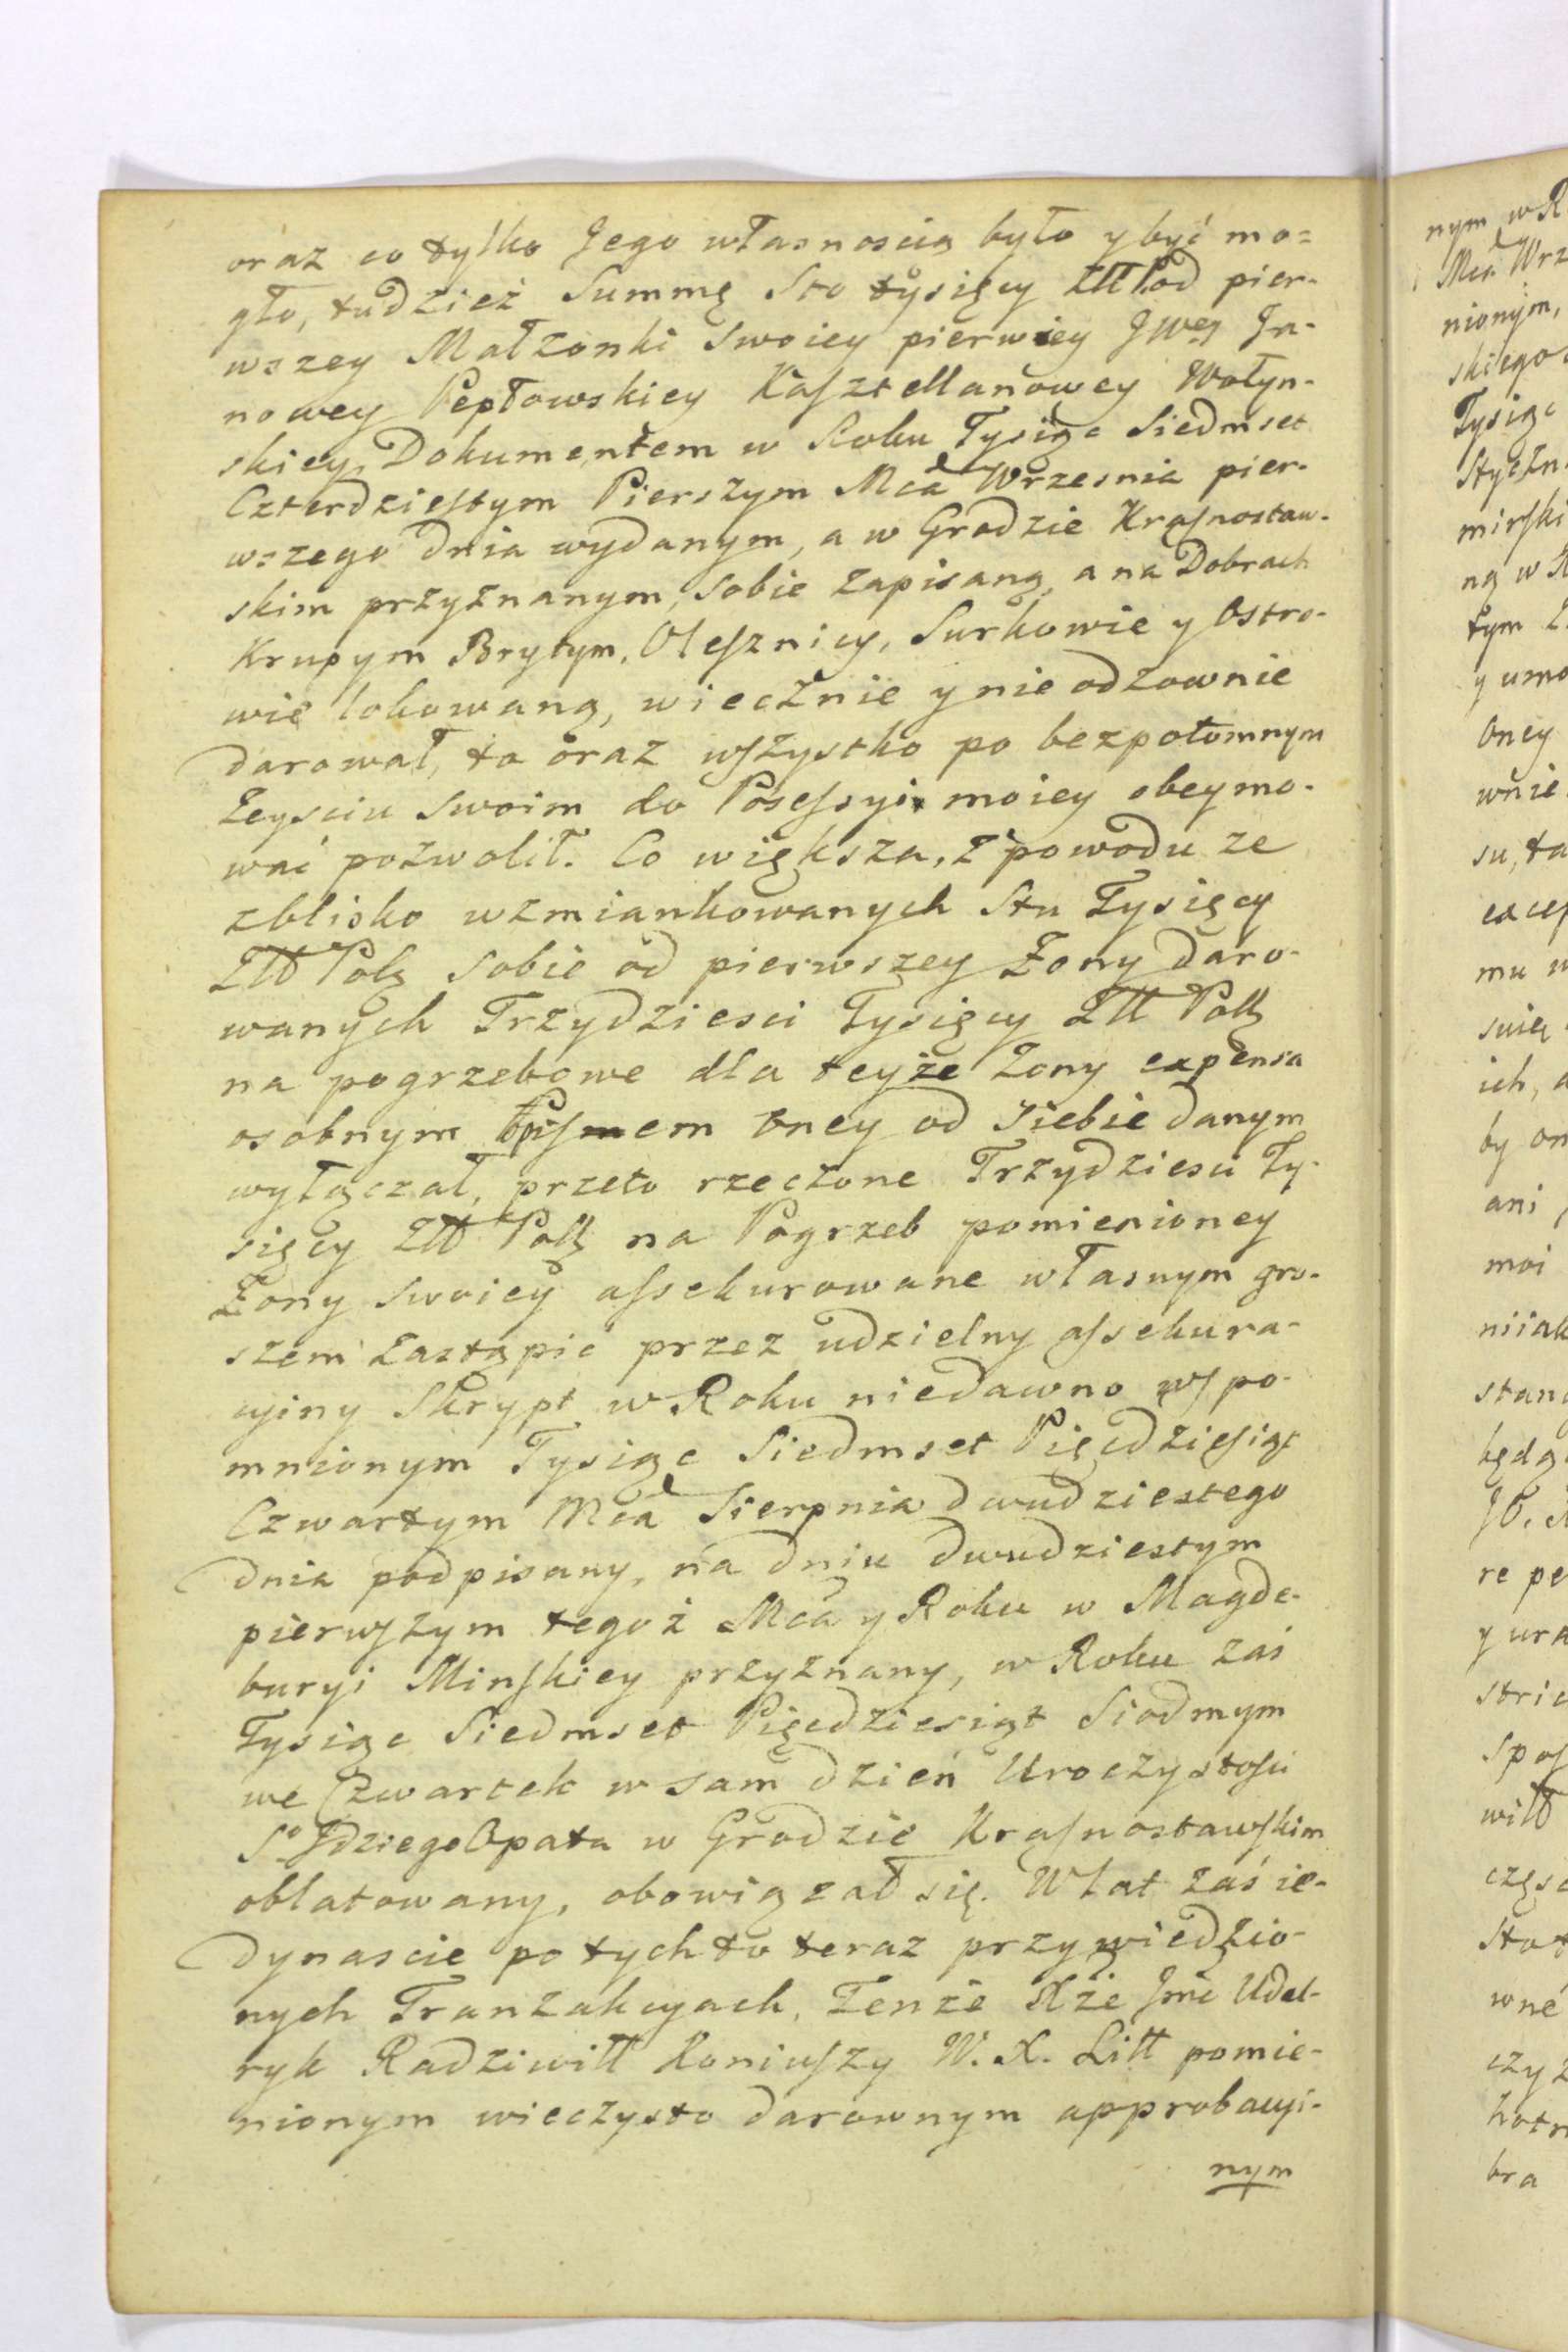 oraz co tylko Jego własnoscią było y być mo=
gło, tudzież Summę Sto tysięcy Złł od pier-
wszey Małzonki Swoiey pierwiey JWey Ja-
nowey Pepłowskiey Kasztellanowey Wołyn-
skiey, Dokumentem w Roku Tysiąc Siedmset
Czterdziestym Pierszym Mca Wrzesnia pier-
wszego dnia wydanym, a w Grodzie Krasnostaw-
skim przyznanym, Sobie zapisaną, a na Dobrach
Krupym Brytym, Olesznicy, Surhowie y Ostro-
wie lokowaną, wiecznie y nie odzownie
darował, to oraz wszystko po bezpotomnym
Zeysciu Swoim do Posessyi moiey obeymo-
wać pozwolił. Co większa, z powodu ze
zblisko wzmiankowanych Stu Tysięcy
Złł Polą Sobie od pierwszey Zony daro-
wanych Trzydziesci Tysięcy Złł Polł
na pogrzebowe dla teyże Zony expensa
osobnym Pismem oney od Siebie danym
wyłączał, przeto rzeczone Trzydziesci Ty-
sięcy Złł Polł na Pogrzeb pomienioney
Zony Swoiey assekurowane własnym gro-
szem zastąpić przez udzielny assekura-
cyiny Skrypt w Roku niedawno wspo-
mnionym Tysiąc Siedmset Pięcdziesiąt
Czwartym Mca Sierpnia dwudziestego
dnia podpisany, na dniu dwudziestym
pierwszym tegoż Mca y Roku w Magde-
buryi Minskiey przyznany, w Roku zaś
Tysiąc Siedmset Pięcdziesiąt Siodmym
we Czwartek w sam dzień Uroczystosci
So Jdziego Opata w Grodzie Krasnostawskim
oblatowany, obowiązał się. W lat zaś ie-
dynascie po tych to teraz przywiedzio-
nych Tranzakcyach, Tenże Xże Jmć Udal-
ryk Radziwiłł Koniuszy W. X. Litt pomie-
nionym wieczysto darownym approbacyi-
nym
nym w R
Mca Wrz
nionym,
skiego
Tysiąc
Styczn
mirski
ną w R
tym
y umo
Oney
wnie
su, ta
excep
mu w
ich, a
by on
ani
moi
niiak
stan
będą
JO. X
re pe
y ura
stri
spos
wiłł
częśc
Sto
wne
czy
bra